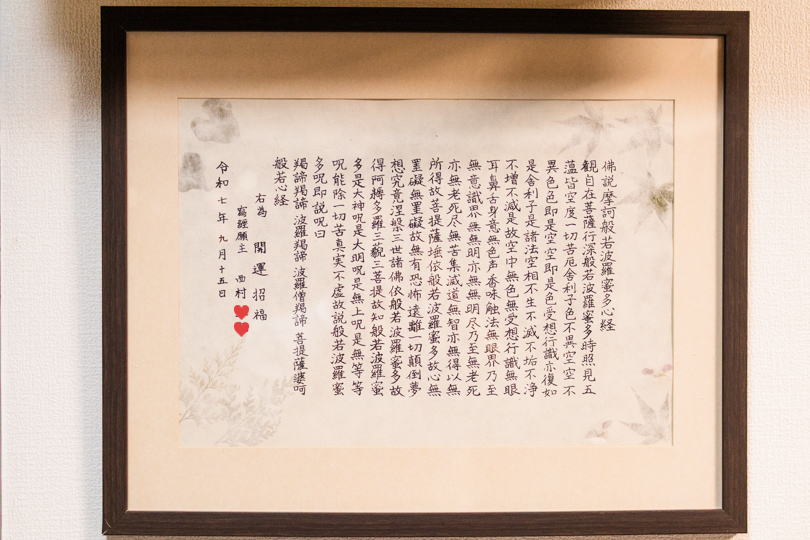 佛説摩訶般若波羅蜜多心経
観自在菩薩行深般若波羅蜜多時照見五
蘊皆空度一切苦厄舎利子色不異空空不
異色色即是空空即是色受想行識亦復如
是舎利子是諸法空相不生不滅不垢不浄
不増不減是故空中無色無受想行識無眼
耳鼻舌身意無色声香味触法無眼界乃至
無意識界無無明亦無無明尽乃至無老死
亦無老死尽無苦集滅道無智亦無得以無
所得故菩提薩埵依般若波羅蜜多故心無
罣礙無罣礙故無有恐怖遠離一切顛倒夢
想究竟涅槃三世諸佛依般若波羅蜜多故
得阿耨多羅三藐三菩提故知般若波羅蜜
多是大神呪是大明呪是無上呪是無等等
呪能除一切苦真実不虚故説般若波羅蜜
多呪即説呪曰
羯諦羯諦 波羅羯諦 波羅僧羯諦 菩提薩婆呵
般若心経
右為 開運招福
寫經願主 西村
令和七年九月十五日